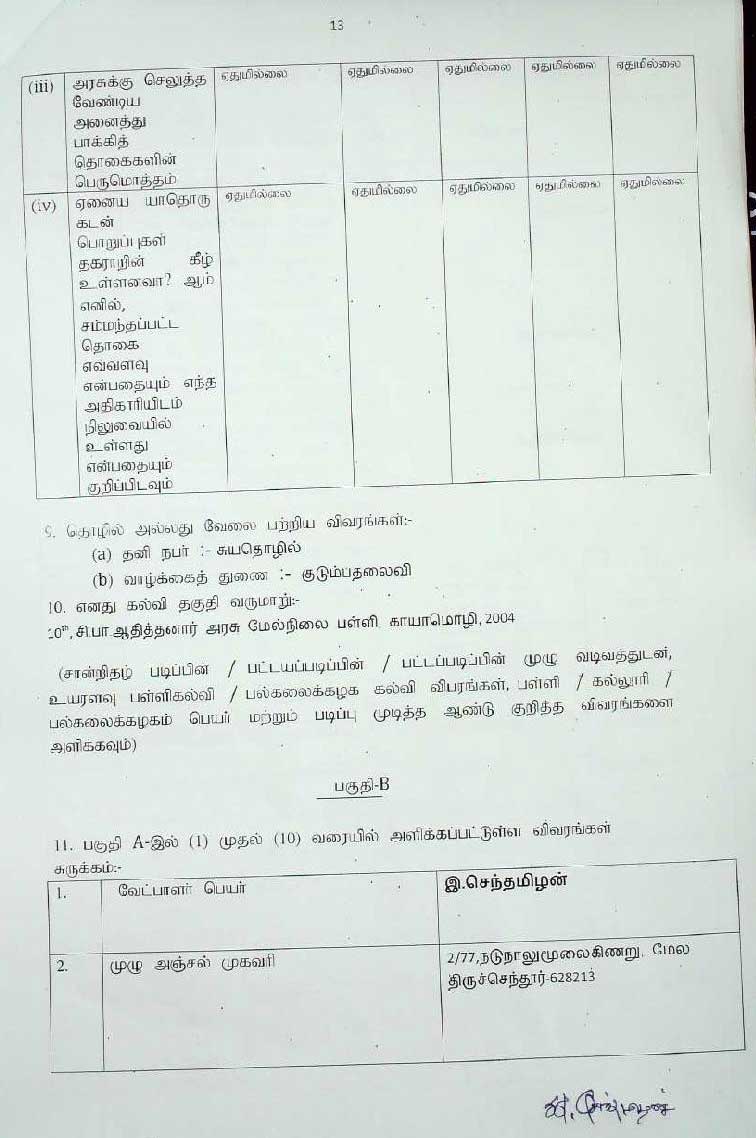 13
(iii) அரசுக்கு செலுத்த ஏதுமில்லை ஏதுமில்லை ஏதுமில்லை ஏதுமில்லை ஏதுமில்லை
வேண்டிய
அனைத்து
பாக்கித்
தொகைகளின்
பெருமொத்தம்
(iv) ஏனைய யாதொரு ஏதுமில்லை ஏதுமில்லை ஏதுமில்லை ஏதுமில்லை ஏதுமில்லை
கடன்
பொறுப்புகள்
தகராறின் கீழ்
உள்ளனவா? ஆம்
எனில்,
சம்மந்தப்பட்ட
தொகை
எவ்வளவு
என்பதையும் எந்த
அதிகாரியிடம்
நிலுவையில்
உள்ளது
என்பதையும்
குறிப்பிடவும்
9. தொழில் அல்லது வேலை பற்றிய விவரங்கள்:-
(a) தனி நபர் :- சுயதொழில்
(b) வாழ்க்கைத் துணை :- குடும்பதலைவி
10. எனது கல்வி தகுதி வருமாறு:-
10th, சி.பா.ஆதித்தனார் அரசு மேல்நிலை பள்ளி, காயாமொழி, 2004
(சான்றிதழ் படிப்பின் / பட்டயப்படிப்பின் / பட்டப்படிப்பின் முழு வடிவத்துடன்,
உயரளவு பள்ளிகல்வி / பல்கலைக்கழக கல்வி விபரங்கள், பள்ளி / கல்லூரி /
பல்கலைக்கழகம் பெயர் மற்றும் படிப்பு முடித்த ஆண்டு குறித்த விவரங்களை
அளிக்கவும்)
பகுதி-B
11. பகுதி A-இல் (1) முதல் (10) வரையில் அளிக்கப்பட்டுள்ள விவரங்கள்
சுருக்கம்:-
1. வேட்பாளர் பெயர் இ.செந்தமிழன்
2. முழு அஞ்சல் முகவரி 2/77,நடுநாலுமூலைகிணறு, மேல
திருச்செந்தூர்-628213